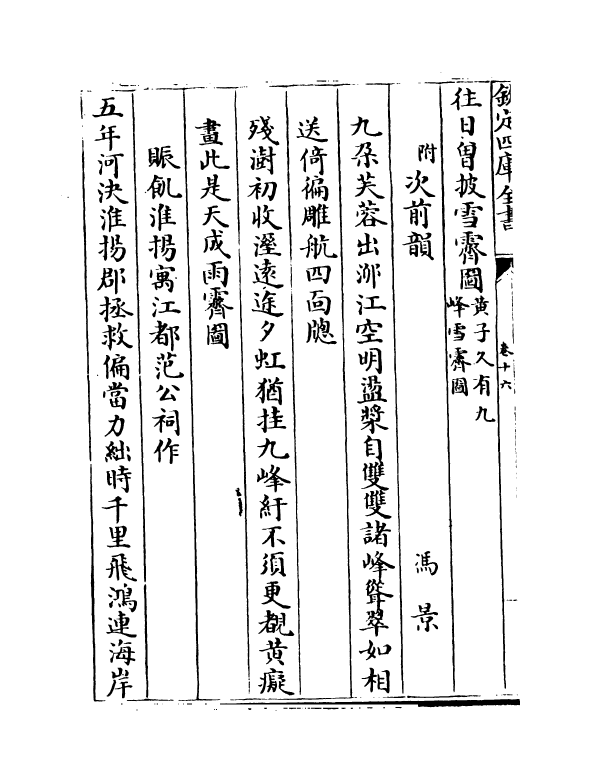 欽定四庫全書
卷十六
往日曾披雪霽圖黃子久有九
峰雪霽圖
附次前韻　馮景
九朵芙蓉出泖江空明盪槳自雙雙諸峰聳翠如相
送倚徧雕航四面牕
殘澍初收溼遠途夕虹猶挂九峰紆不須更覩黃癡
畫此是天成雨霽圖
賑飢淮揚寓江都范公祠作
五年河決淮揚郡拯救偏當力絀時千里飛鴻連海岸